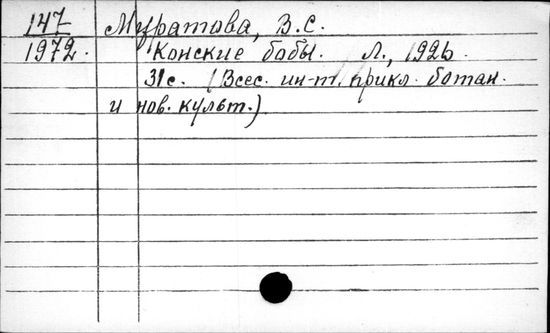 147 Муратова, В.С.
1972. Конские бобы. Л., 1926
31с. (Всес. ин-т прикл. ботан.
и нов. культ.)